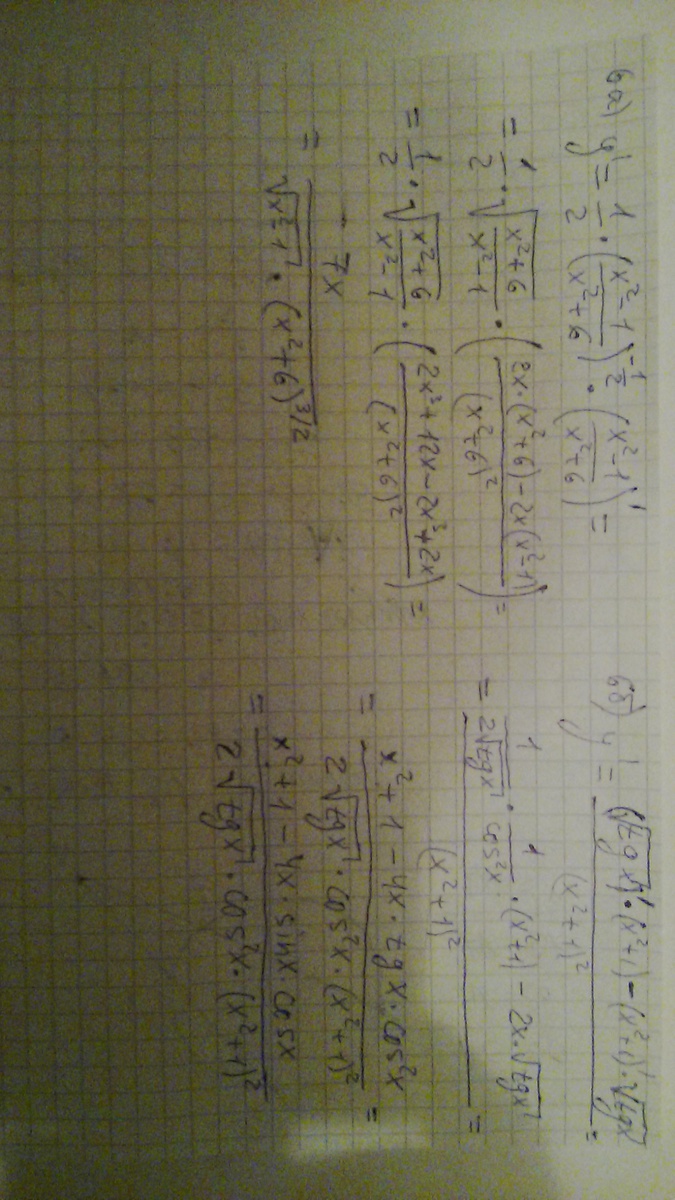 6a) y' = 1/2 · ((x²-1)/(x²+6))^(-1/2) · ((x²-1)/(x²+6))' =
= 1/2 · √((x²+6)/(x²-1)) · ((2x·(x²+6)-2x(x²-1))/(x²+6)²) =
= 1/2 · √((x²+6)/(x²-1)) · ((2x³+12x-2x³+2x)/(x²+6)²) =
= 7x/(√(x²-1) · (x²+6)^(3/2))
6б) y' = ((√tgx)'·(x²+1)-(x²+1)'·√tgx)/(x²+1)² =
= (1/(2√tgx) · 1/cos²x · (x²+1) - 2x·√tgx)/(x²+1)² =
= (x²+1-4x·tgx·cos²x)/(2√tgx·cos²x·(x²+1)²) =
= (x²+1-4x·sinx·cosx)/(2√tgx·cos²x·(x²+1)²)